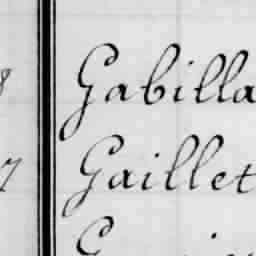 8 Gabilla
7 Gaillet